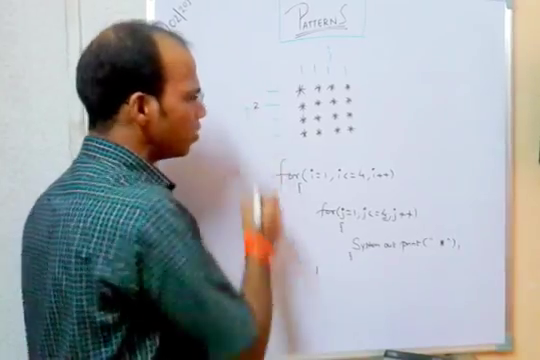 02/20
PATTERNS
* * * *
2 * * * *
* * * *
* * * *
for(i=1, i<=4, i++)
{
for(j=1, j<=4, j++)
{
System out print(" * "),
}